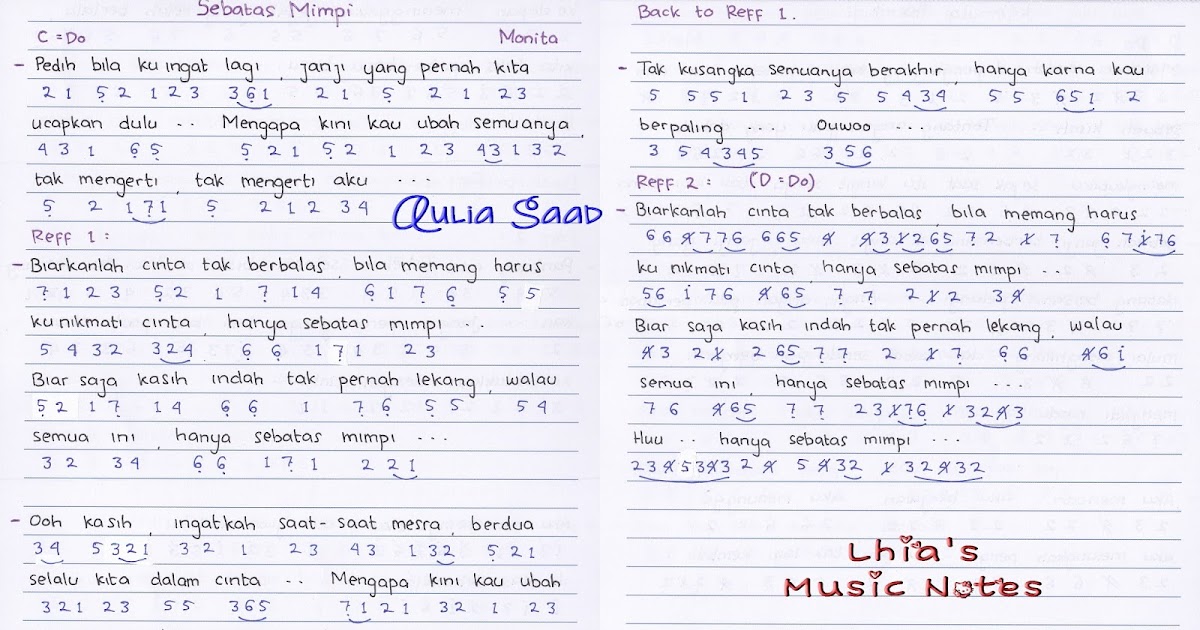 Sebatas Mimpi
C = Do Monita
- Pedih bila ku ingat lagi , janji yang pernah kita
2 1 5̣ 2 1 2 3 3 6̣ 1 2 1 5̣ 2 1 2 3
ucapkan dulu ·· Mengapa kini kau ubah semuanya,
4 3 1 6̣ 5̣ 5̣ 2 1 5̣ 2 1 2 3 4 3 1 3 2
tak mengerti , tak mengerti aku ···
5̣ 2 1 7̣ 1 5̣ 2 1 2 3 4
Aulia Saad
Reff 1 :
- Biarkanlah cinta tak berbalas , bila memang harus
7̣ 1 2 3 5̣ 2 1 7̣ 1 4 6̣ 1 7̣ 6̣ 5̣ 5
ku nikmati cinta hanya sebatas mimpi ···
5 4 3 2 3 2 4 6̣ 6̣ 1 7̣ 1 2 3
Biar saja kasih indah tak pernah lekang, walau
5̣ 2 1 7̣ 1 4 6̣ 6̣ 1 7̣ 6̣ 5̣ 5 5 4
semua ini , hanya sebatas mimpi ···
3 2 3 4 6̣ 6̣ 1 7̣ 1 2 2 1
- Ooh kasih , ingatkah saat-saat mesra , berdua
3 4 5 3 2 1 3 2 1 2 3 4 3 1 3 2 5̣ 2 1
selalu kita dalam cinta ·· Mengapa kini kau ubah
3 2 1 2 3 5 5 3 6 5 7̣ 1 2 1 3 2 1 2 3
Back to Reff 1 .
- Tak kusangka semuanya berakhir hanya karna kau
5 5 5 1 2 3 5 5 4 3 4 5 5 6 5 1 2
berpaling ···· Ouwoo ····
3 5 4 3 4 5 3 5 6
Reff 2 : (D = Do)
- Biarkanlah cinta tak berbalas , bila memang harus
6 6 4̸ 7 7 6 6 6 5 4̸ 4̸ 3 1̸ 2 6 5 7̣ 2 1̸ 7̣ 6 7 1̸ 7 6
ku nikmati cinta , hanya sebatas mimpi ···
5 6 1̇ 7 6 4̸ 6 5 7̣ 7̣ 2 1̸ 2 3 4̸
Biar saja kasih indah tak pernah lekang, walau
4̸ 3 2 1̸ 2 6 5 7̣ 7̣ 2 1̸ 7̣ 6 6 4̸ 6 1̇
semua ini , hanya sebatas mimpi ···
7 6 4̸ 6 5 7̣ 7̣ 2 3 1̸ 7̣ 6 1̸ 3 2 4̸ 3
Huu ·· hanya sebatas mimpi ···
2 3 4̸ 5 3 4̸ 3 2 4̸ 5 4̸ 3 2 1̸ 3 2 4̸ 3 2
Lhia's
Music Notes